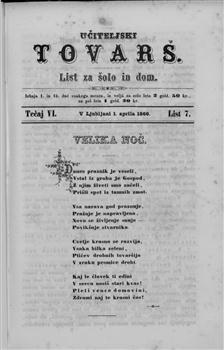 UČITELJSKI
TOVARŠ.
List za šolo in dom.
Izhaja 1. in 15. dné vsakega meseca, in veljá za celo leto 2 gold. 50 kr.,
za pol leta 1 gold. 30 kr.
Tečaj VI. V Ljubljani 1. aprila 1866. List 7.
VELIKA NOČ.
Dones praznik je veseli,
Vstal iz groba je Gospod,
Z njim živeti smo začeli,
Prišli spet iz tamnih zmot.
Vsa narava god praznuje,
Pražnje je napravljena,
Novo se življenje snuje
Povikšuje stvarnika.
Cvetje krasno se razvija,
Vsaka bilka zeleni,
Ptičev drobnih tovaršija
V zraku pesmice drobi.
Kaj še človek ti edini
V svoji nosiš stari kvas!
Pleti vence domovini,
Zdrami naj te krasni čas!